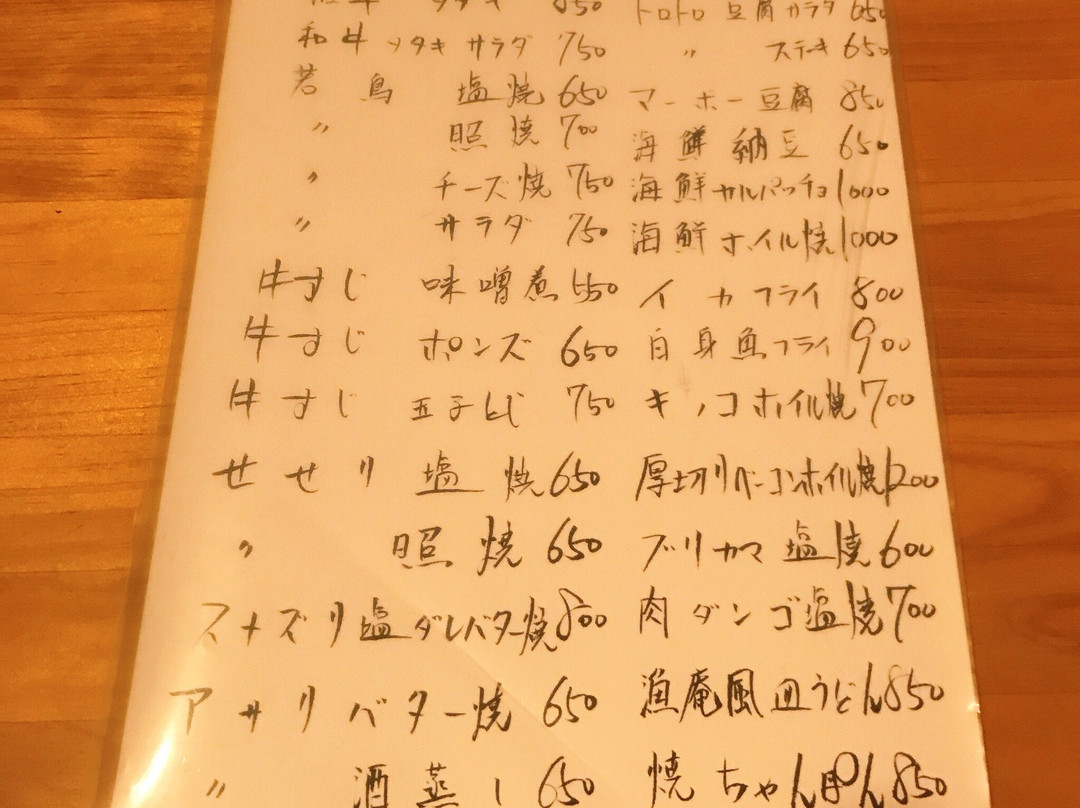 和牛 タタキ サラダ 750
若鳥 塩焼 650
〃 照焼 700
〃 チーズ焼 750
〃 サラダ 750
牛すじ 味噌煮 550
牛すじ ポンズ 650
牛すじ 玉子とじ 750
せせり 塩焼 650
〃 照焼 650
スナズリ塩ダレバター焼 800
アサリバター焼 650
〃 酒蒸し 650
トロトロ 豆腐サラダ 650
〃 ステーキ 650
マーボー豆腐 850
海鮮納豆 650
海鮮カルパッチョ 1000
海鮮ホイル焼 1000
イカフライ 800
白身魚フライ 900
キノコホイル焼 700
厚切りベーコンホイル焼 1200
ブリカマ塩焼 600
肉ダンゴ塩焼 700
漁庵風皿うどん 850
焼ちゃんぽん 850